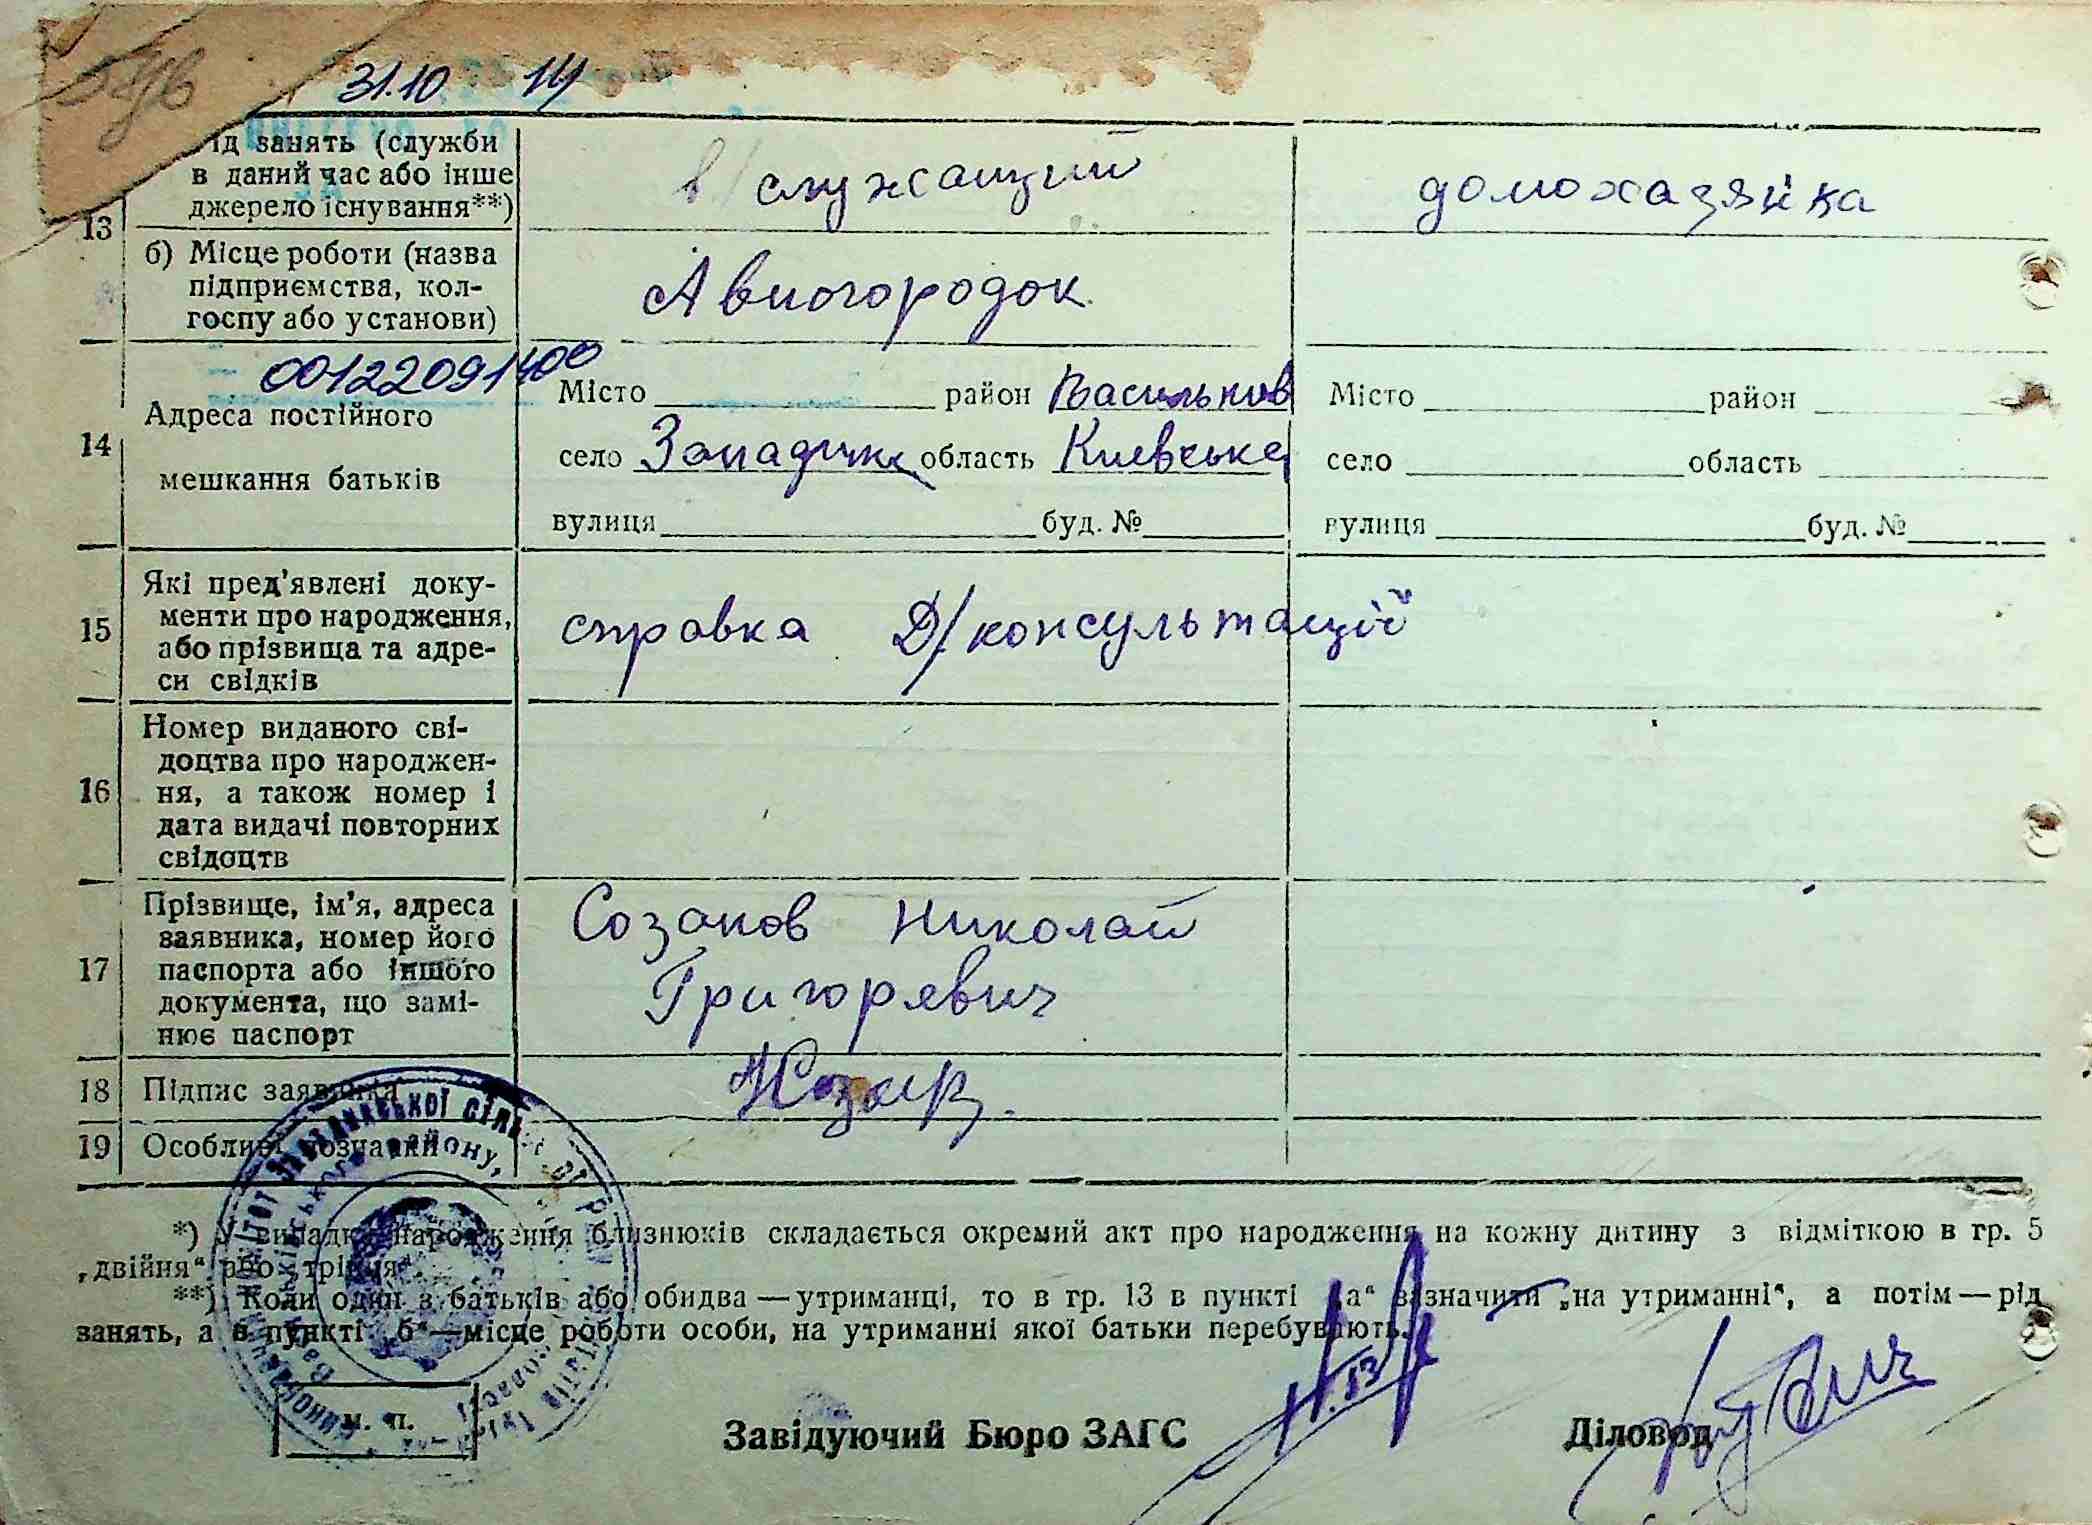 31.10 14
ід занять (служби
в даний час або інше
джерело існування**)
служащий
домохазяйка
13
б) Місце роботи (назва
підприємства, кол-
госпу або установи)
Авиогородок
00122091400
14
Адреса постійного
мешкання батьків
Місто район Васильков
село Западинк область Киевська
вулиця буд. №
Місто район
село область
вулиця буд. №
15
Які пред'явлені доку-
менти про народження,
або прізвища та адре-
си свідків
справка Д/консультації
16
Номер виданого сві-
доцтва про народжен-
ня, а також номер і
дата видачі повторних
свідоцтв
17
Прізвище, ім'я, адреса
заявника, номер його
паспорта або іншого
документа, що замі-
нює паспорт
Созанов Николай
Григоревич
18 Підпис заявника
19 Особливі познаки
*) У випадку народження близнюків складається окремий акт про народження на кожну дитину з відміткою в гр. 5
„двійня“ або „трійня“.
**) Коли один з батьків або обидва — утриманці, то в гр. 13 в пункті „а“ зазначити „на утриманні“, а потім — рід
занять, а в пункті „б“ — місце роботи особи, на утриманні якої батьки перебувають.
м. п.
Завідуючий Бюро ЗАГС
Діловод